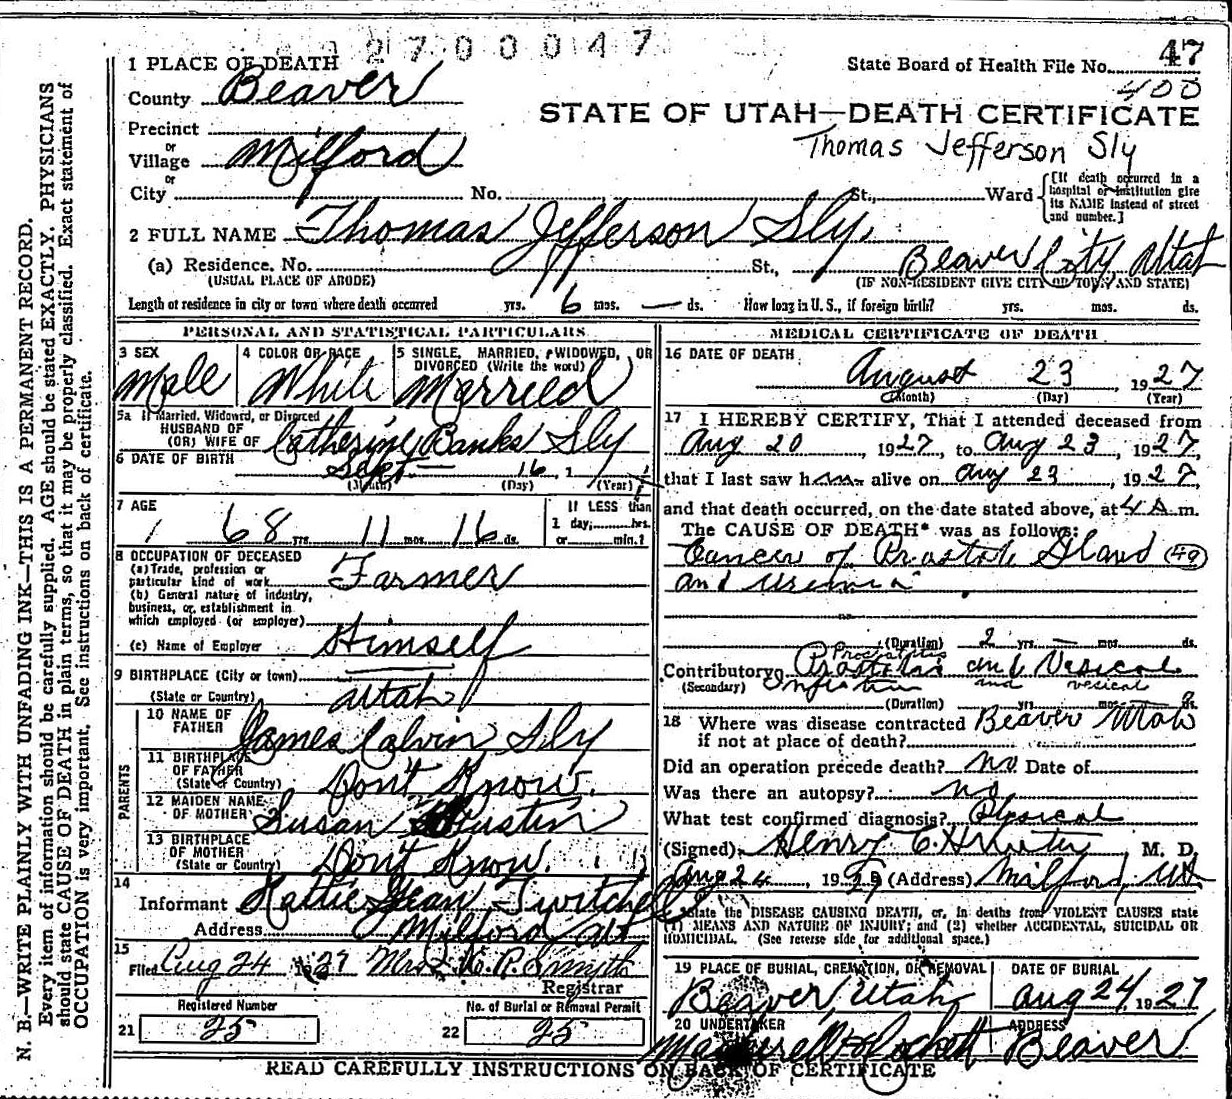 2700047
1 PLACE OF DEATH
State Board of Health File No. 47
400
County Beaver
STATE OF UTAH—DEATH CERTIFICATE
Precinct
or
Village Milford
Thomas Jefferson Sly
or
City No. St., Ward
[If death occurred in a
hospital or institution give
its NAME instead of street
and number.]
2 FULL NAME Thomas Jefferson Sly.
(a) Residence. No. St., Beaver City Utah
(USUAL PLACE OF ABODE) (IF NON-RESIDENT GIVE CITY OR TOWN AND STATE)
Length of residence in city or town where death occurred yrs. 6 mos. — ds. How long in U. S., if foreign birth? yrs. mos. ds.
PERSONAL AND STATISTICAL PARTICULARS
3 SEX
Male
4 COLOR OR RACE
White
5 SINGLE, MARRIED, WIDOWED, OR
DIVORCED (Write the word)
Married
5a If Married, Widowed, or Divorced
HUSBAND OF
(OR) WIFE OF Catherine Banks Sly
6 DATE OF BIRTH Sept. — 16 1
(Month) (Day) (Year)
7 AGE
68 yrs. 11 mos. 16 ds.
If LESS than
1 day, hrs.
or min.?
8 OCCUPATION OF DECEASED
(a) Trade, profession or
particular kind of work Farmer
(b) General nature of industry,
business, or establishment in
which employed (or employer)
(c) Name of Employer Himself
9 BIRTHPLACE (City or town)
(State or Country) Utah
PARENTS
10 NAME OF
FATHER James Calvin Sly
11 BIRTHPLACE
OF FATHER
(State or Country) Don't Know.
12 MAIDEN NAME
OF MOTHER Susan
13 BIRTHPLACE
OF MOTHER
(State or Country) Don't Know.
14
Informant Hattie Jean Twitchell
Address Milford Ut
15
Filed Aug 24 1927 Mrs. P. Smyth
Registrar
Registered Number
21 25
No. of Burial or Removal Permit
22 25
MEDICAL CERTIFICATE OF DEATH
16 DATE OF DEATH
August 23, 1927
(Month) (Day) (Year)
17 I HEREBY CERTIFY, That I attended deceased from
Aug 20 1927, to Aug 23, 1927,
that I last saw him alive on Aug 23, 1927,
and that death occurred, on the date stated above, at 4 A.m.
The CAUSE OF DEATH* was as follows:
Cancer of Prostate Gland (49)
and uremia
(Duration) 2 yrs. — mos. ds.
Contributory Prostatitis and Vesical
(Secondary) Infection and vesical
(Duration) yrs. mos. ds.
18 Where was disease contracted Beaver Utah
if not at place of death?
Did an operation precede death? no. Date of
Was there an autopsy? no
What test confirmed diagnosis? Physical
(Signed) Henry C. M. D.
Aug 24, 19 (Address) Milford, Ut
*State the DISEASE CAUSING DEATH, or, in deaths from VIOLENT CAUSES state
(1) MEANS AND NATURE OF INJURY; and (2) whether ACCIDENTAL, SUICIDAL OR
HOMICIDAL. (See reverse side for additional space.)
19 PLACE OF BURIAL, CREMATION, OR REMOVAL
Beaver, Utah
DATE OF BURIAL
Aug 24, 1927
20 UNDERTAKER
ADDRESS
Beaver
READ CAREFULLY INSTRUCTIONS ON BACK OF CERTIFICATE
N. B.—WRITE PLAINLY WITH UNFADING INK—THIS IS A PERMANENT RECORD.
Every item of information should be carefully supplied. AGE should be stated EXACTLY. PHYSICIANS
should state CAUSE OF DEATH in plain terms, so that it may be properly classified. Exact statement of
OCCUPATION is very important. See instructions on back of certificate.